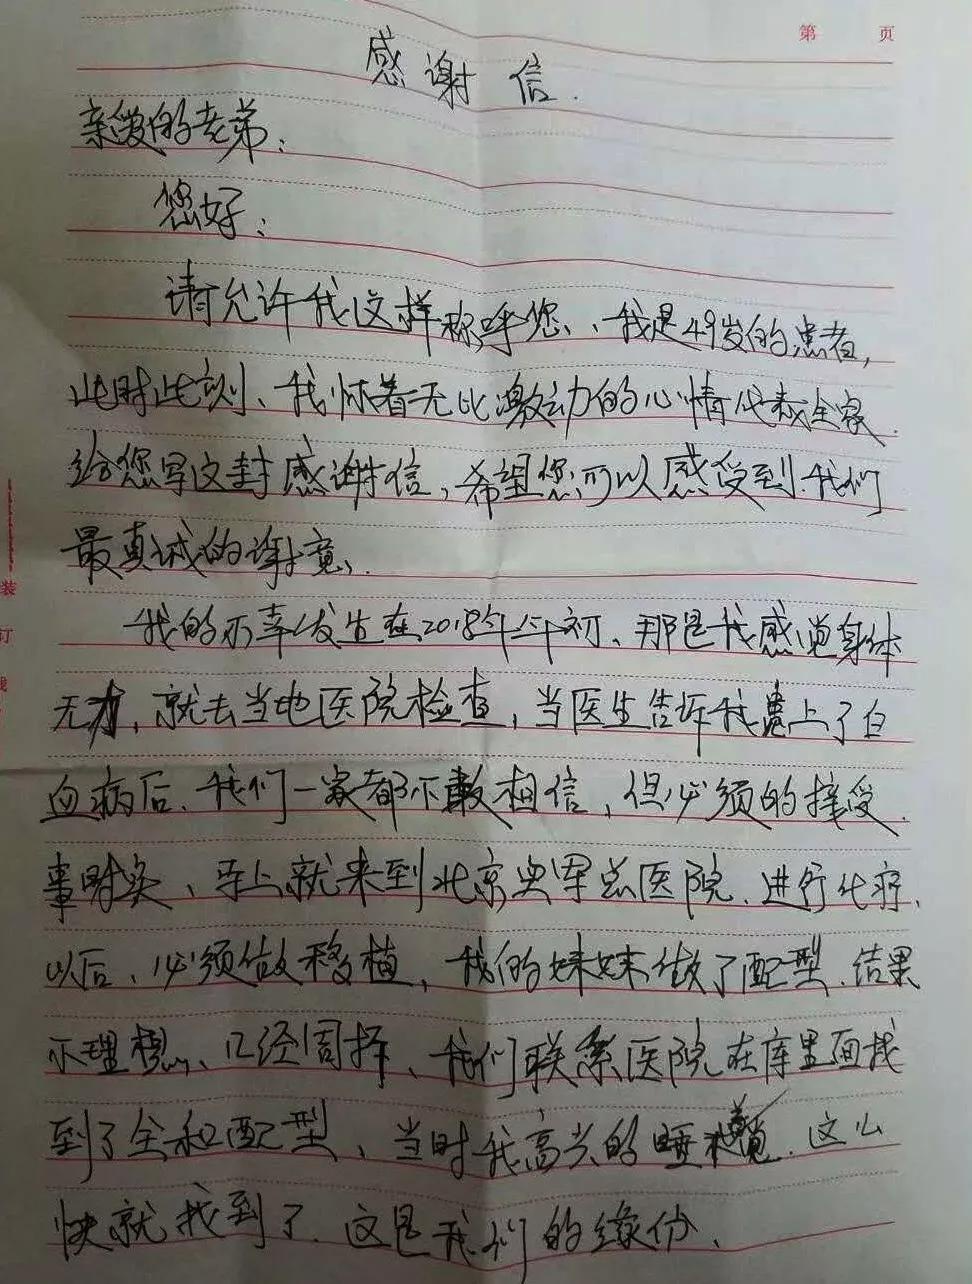 第 页
感谢信.
亲爱的老弟:
您好:
请允许我这样称呼您、我是49岁的患者,
此时此刻、我怀着无比激动的心情代表全家.
给您写这封感谢信,希望您可以感受到.我们
最真诚的谢意、.
我的不幸发生在2018年年初、那是我感觉身体
无力,就去当地医院检查,当医生告诉我患上了白
血病后.我们一家都不敢相信,但必须的接受.
事实、马上就来到北京空军总医院.进行化疗.
以后、必须做移植,我的妹妹做了配型.结果
不理想、几经周折、我们联系医院在库里面找
到了全和配型、当时我高兴的睡不着觉.这么
快就找到了.这是我们的缘份、
装
订
线